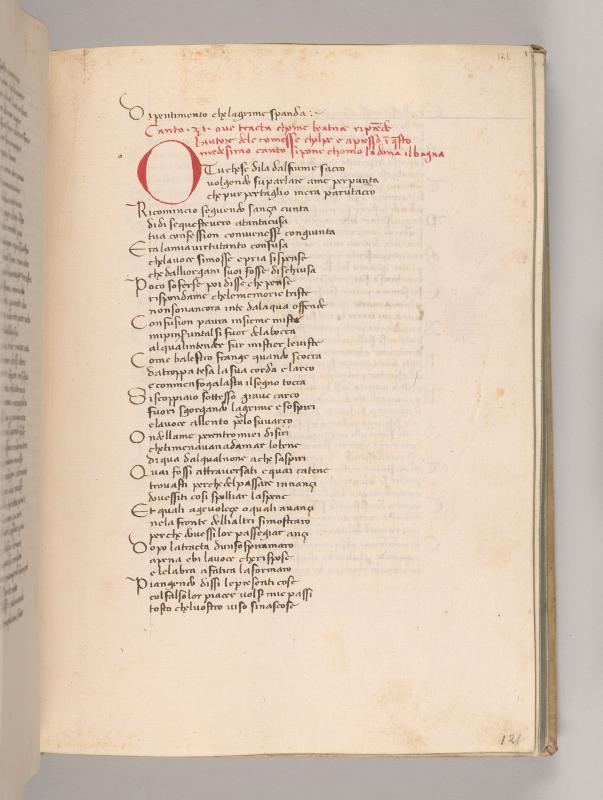 121
Di pentimento che lagrime spanda :~
Canto · 31 · oue tracta chome beatrice riprēde
lautore dele comesse cholpe e apresso ī q̄sto
medesimo canto si pone chomo la dona il bagna
O Tu chese dila dal fiume sacro
uolgendo su parlare ame per punta
che pur per taglio mera paruto acro
Ricomincio seguendo sança cunta
di di se queste uero atanta cusa
tua confession conuenesse congiunta
Era la mia uirtu tanto confusa
che lauoce simosse epria si spense
che dal horgani suoi fosse dischiusa
Poco soferse poi disse che pense
rispondame chele memorie triste
non sonancora inte dalaqua offense
Confusion paura insieme miste
mi pinser untal si fuor dela bocca
al qual intender fur mistier leuiste
Come balestro frange quando scocca
da troppa tesa la sua corda e larco
e con men foga lasta il segno tocca
Si scoppiaio sottesso graue carco
fuori sgorgando lagrime e sospiri
e lauoce allento p̄ lo suuarco
Ondellame perentro miei disiri
cheti menauan ad amar lo bene
di qua dal qual none a che saspiri
Quai fossi attrauersati e quai catene
trouasti perche del passare innançi
douessiti cosi spolliar la spene
Et quali ageuoleçe o quali auançi
nela fronte delli altri simostraro
perche douessi lor passegiar ançi
Dopo la tracta dun sospir amaro
apena ebi lauoce che rispose
e le labra afatica la formaro
Piangendo dissi le presenti cose
col falso lor piacer uolser mie passi
tosto chel uostro uiso si nascose
121